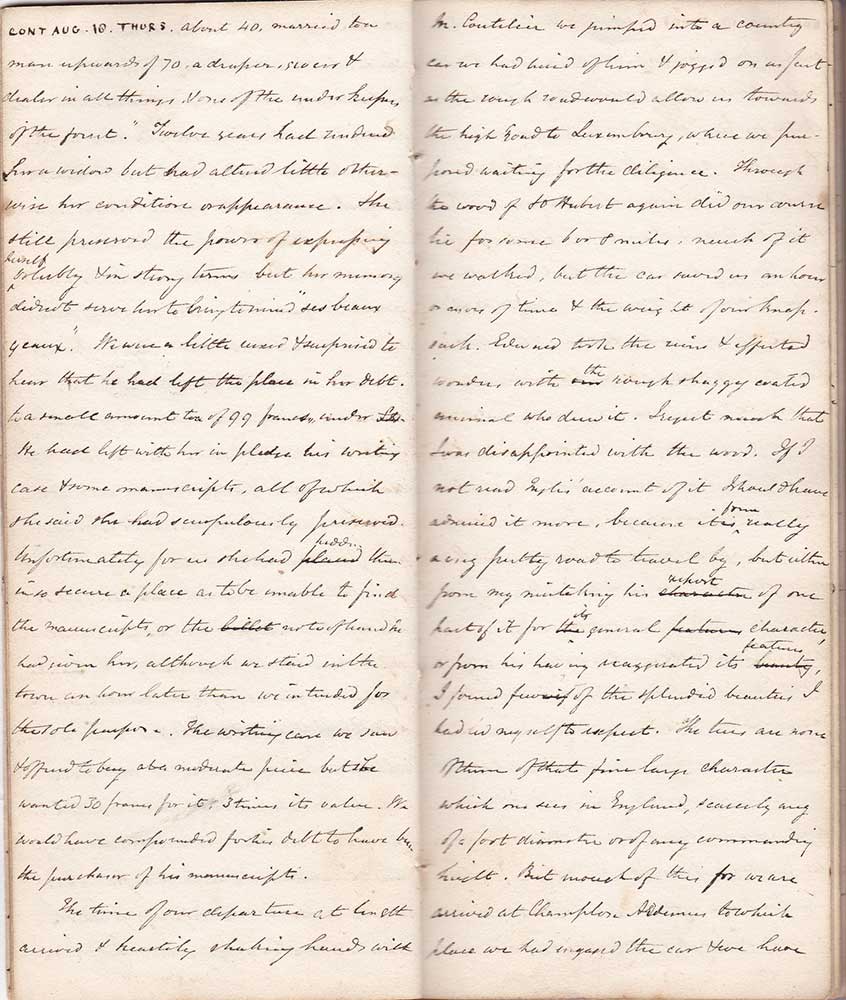 CONT AUG. 18. THURS. about 40, married to a
man upwards of 70, a draper, grocer &
dealer in all things, & one of the under keepers
of the forest." Twelve years had rendered
her a widow but had altered little other-
wise her condition or appearance. She
still preserved the power of expressing
herself
volubly & in strong terms but her memory
did not serve her to bring to mind "ses beaux
yeaux". We were a little vexed & surprised to
hear that he had left the place in her debt.
to a small amount too of 99 francs, under
He had left with her in pledge his writing
case & some manuscripts, all of which
she said she had scrupulously preserved.
hidden
Unfortunately for us she had placed them
in so secure a place as to be unable to find
the manuscripts, or the billet note of hand he
had given her, although we staid in the
town an hour later than we intended for
the sole purpose. The writing case we saw
& offered to buy at a moderate price but she
wanted 30 francs for it, 3 times its value. We
would have compounded for his debt to have been
the purchaser of his manuscripts.
The time of our departure at length
arrived & heartily shaking hands with
M. Coutelier we jumped into a country
car we had hired of him & jogged on as fast
as the rough road would allow us towards
the high road to Luxembourg, where we pur-
posed waiting for the diligence. Through
the wood of St Hubert again did our course
lie for some 6 or 8 miles, much of it
we walked, but the car saved us an hour
or more of time & the weight of our knap-
sack. Edward took the reins & effected
the
wonders with rough shaggy coated
animal who drew it. I regret much that
I was disappointed with the wood. If I
not read Inglis' account of it I should have
admired it more, because it is really
a very pretty road to travel by, but either
report
from my mistaking his character of one
its
part of it for the general features character,
features
or from his having exaggerated its beauty,
I found few of the splendid beauties I
had led myself to expect. The trees are none
of them of that fine large character
which one sees in England, scarcely any
of a foot diameter or of any commanding
height. But enough of this for we are
arrived at Champlon Ardennes to which
place we had engaged the car & we have